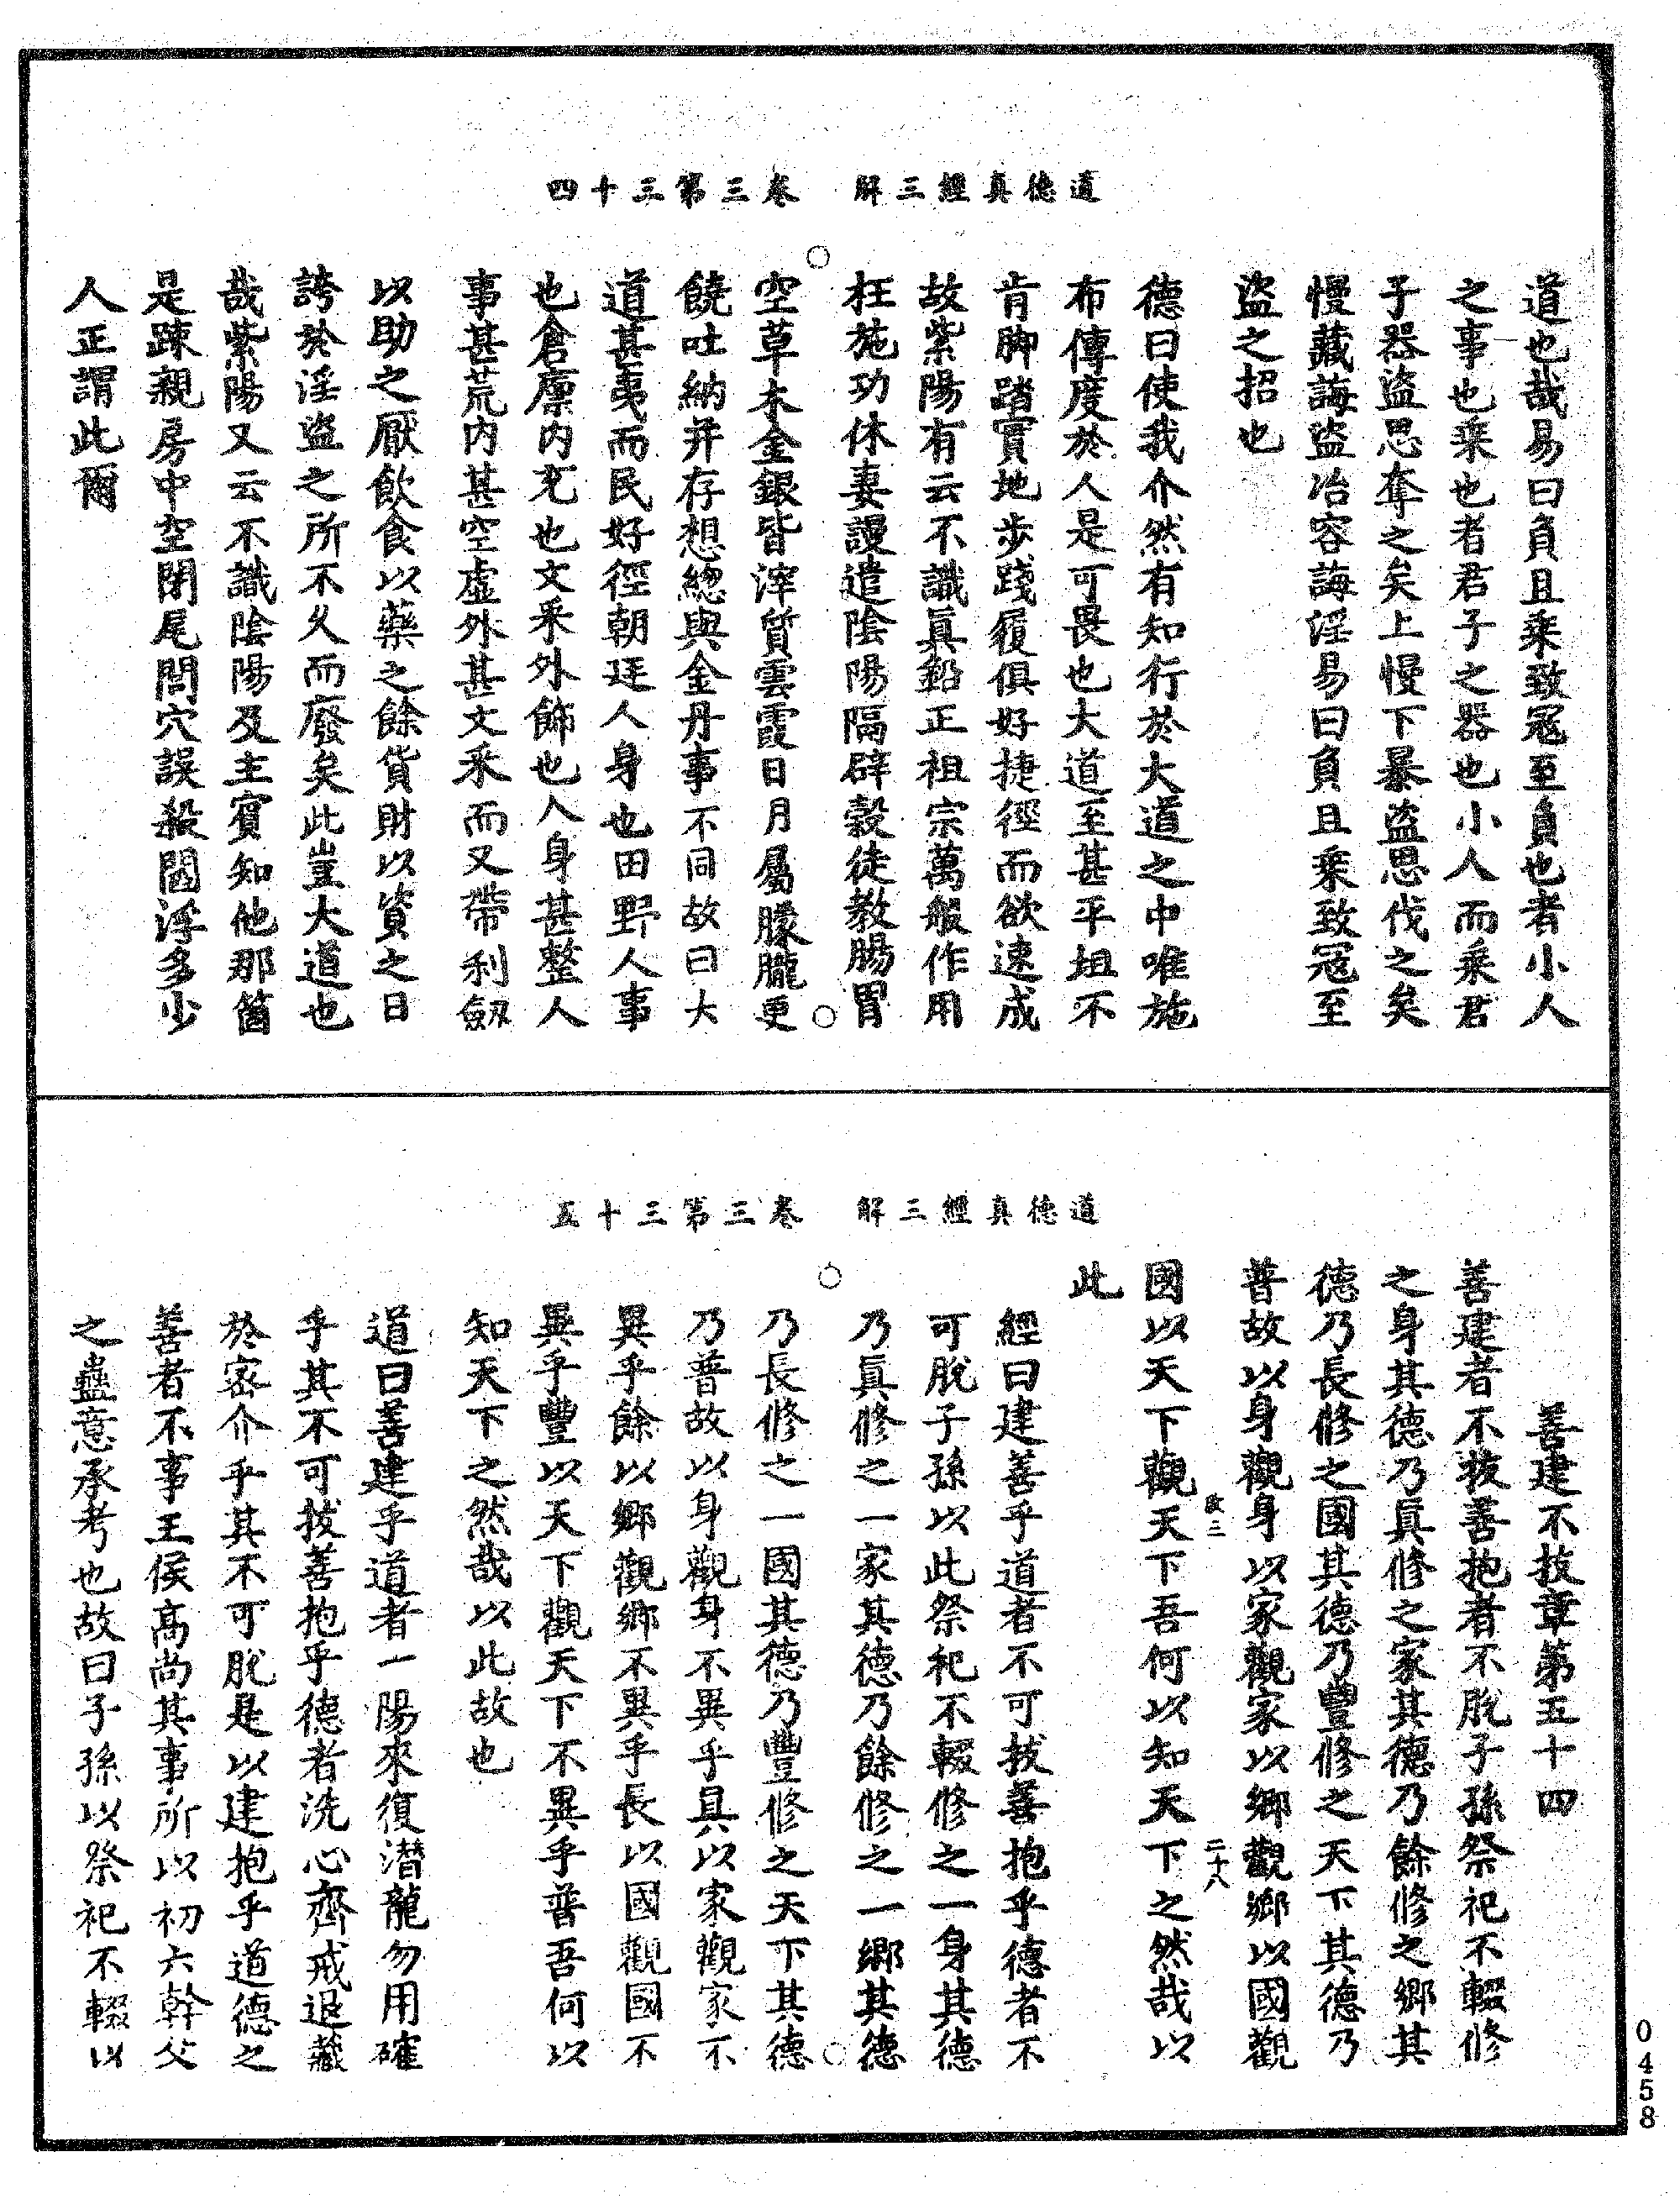 道德真經三解　卷三第三十四
道也哉易曰負且乘致寇至負也者小人
之事也乘也者君子之器也小人而乘君
子器盜思奪之矣上慢下暴盜思伐之矣
慢藏誨盜冶容誨淫易曰負且乘致寇至
盜之招也
德曰使我介然有知行於大道之中唯施
布傳度於人是可畏也大道至甚平坦不
肯脚踏實地步踐履俱好捷徑而欲速成
故紫陽有云不識真鉛正祖宗萬般作用
枉施功休妻謾遣陰陽隔辟穀徒教腸胃
空草木金銀皆滓質雲霞日月屬朦朧更
饒吐納并存想總與金丹事不同故曰大
道甚夷而民好徑朝廷人身也田野人事
也倉廩內充也文采外飾也人身甚整人
事甚荒內甚空虛外甚文采而又帶利劔
以助之厭飲食以藥之餘貨財以資之日
誇於淫盜之所不久而廢矣此豈大道也
哉紫陽又云不識陰陽及主賓知他那箇
是踈親房中空閉尾閭穴誤殺閻浮多少
人正謂此爾
道德真經三解　卷三第三十五
善建不拔章第五十四
善建者不拔善抱者不脫子孫祭祀不輟修
之身其德乃真修之家其德乃餘修之鄉其
德乃長修之國其德乃豐修之天下其德乃
普故以身觀身以家觀家以鄉觀鄉以國觀
敢三　二十八
國以天下觀天下吾何以知天下之然哉以
此
經曰建善乎道者不可拔善抱乎德者不
可脫子孫以此祭祀不輟修之一身其德
乃真修之一家其德乃餘修之一鄉其德
乃長修之一國其德乃豐修之天下其德
乃普故以身觀身不異乎真以家觀家不
異乎餘以鄉觀鄉不異乎長以國觀國不
異乎豐以天下觀天下不異乎普吾何以
知天下之然哉以此故也
道曰善建乎道者一陽來復潛龍勿用確
乎其不可拔善抱乎德者洗心齊戒退藏
於密介乎其不可脫是以建抱乎道德之
善者不事王侯高尚其事所以初六幹父
之蠱意承考也故曰子孫以祭祀不輟以
0458